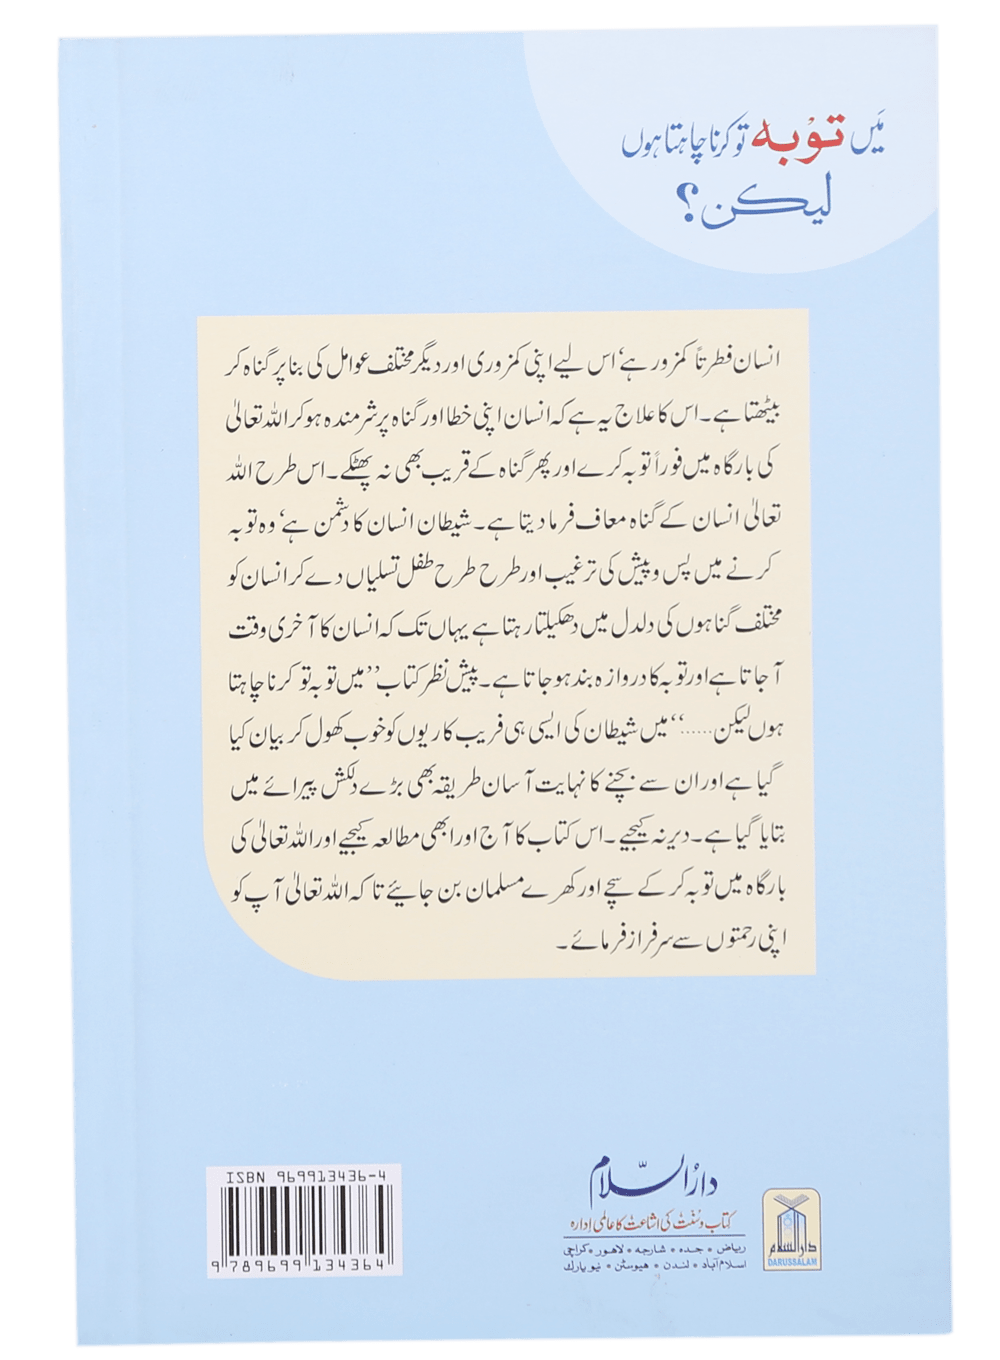 مَیں توْبہ تو کرنا چاہتا ہوں
لیکن؟
انسان فطرتاً کمزور ہے‘ اس لیے اپنی کمزوری اور دیگر مختلف عوامل کی بنا پر گناہ کر
بیٹھتا ہے۔ اس کا علاج یہ ہے کہ انسان اپنی خطا اور گناہ پر شرمندہ ہو کر اللہ تعالیٰ
کی بارگاہ میں فوراً توبہ کرے اور پھر گناہ کے قریب بھی نہ پھٹکے۔ اس طرح اللہ
تعالیٰ انسان کے گناہ معاف فرما دیتا ہے۔ شیطان انسان کا دشمن ہے‘ وہ توبہ
کرنے میں پس و پیش کی ترغیب اور طرح طرح طفل تسلیاں دے کر انسان کو
مختلف گناہوں کی دلدل میں دھکیلتا رہتا ہے یہاں تک کہ انسان کا آخری وقت
آ جاتا ہے اور توبہ کا دروازہ بند ہو جاتا ہے۔ پیش نظر کتاب ’’میں توبہ تو کرنا چاہتا
ہوں لیکن......‘‘ میں شیطان کی ایسی ہی فریب کاریوں کو خوب کھول کر بیان کیا
گیا ہے اور ان سے بچنے کا نہایت آسان طریقہ بھی بڑے دلکش پیرائے میں
بتایا گیا ہے۔ دیر نہ کیجیے۔ اس کتاب کا آج اور ابھی مطالعہ کیجیے اور اللہ تعالیٰ کی
بارگاہ میں توبہ کر کے سچے اور کھرے مسلمان بن جائیے تاکہ اللہ تعالیٰ آپ کو
اپنی رحمتوں سے سرفراز فرمائے۔
دارُالسّلام
کتاب و سنّت کی اشاعت کا عالمی ادارہ
ریاض • جدہ • شارجہ • لاهور • کراچی
اسلام آباد • لندن • هیوسٹن • نیو یارك
دارالسلام
DARUSSALAM
ISBN 969913436-4
9 789699 134364